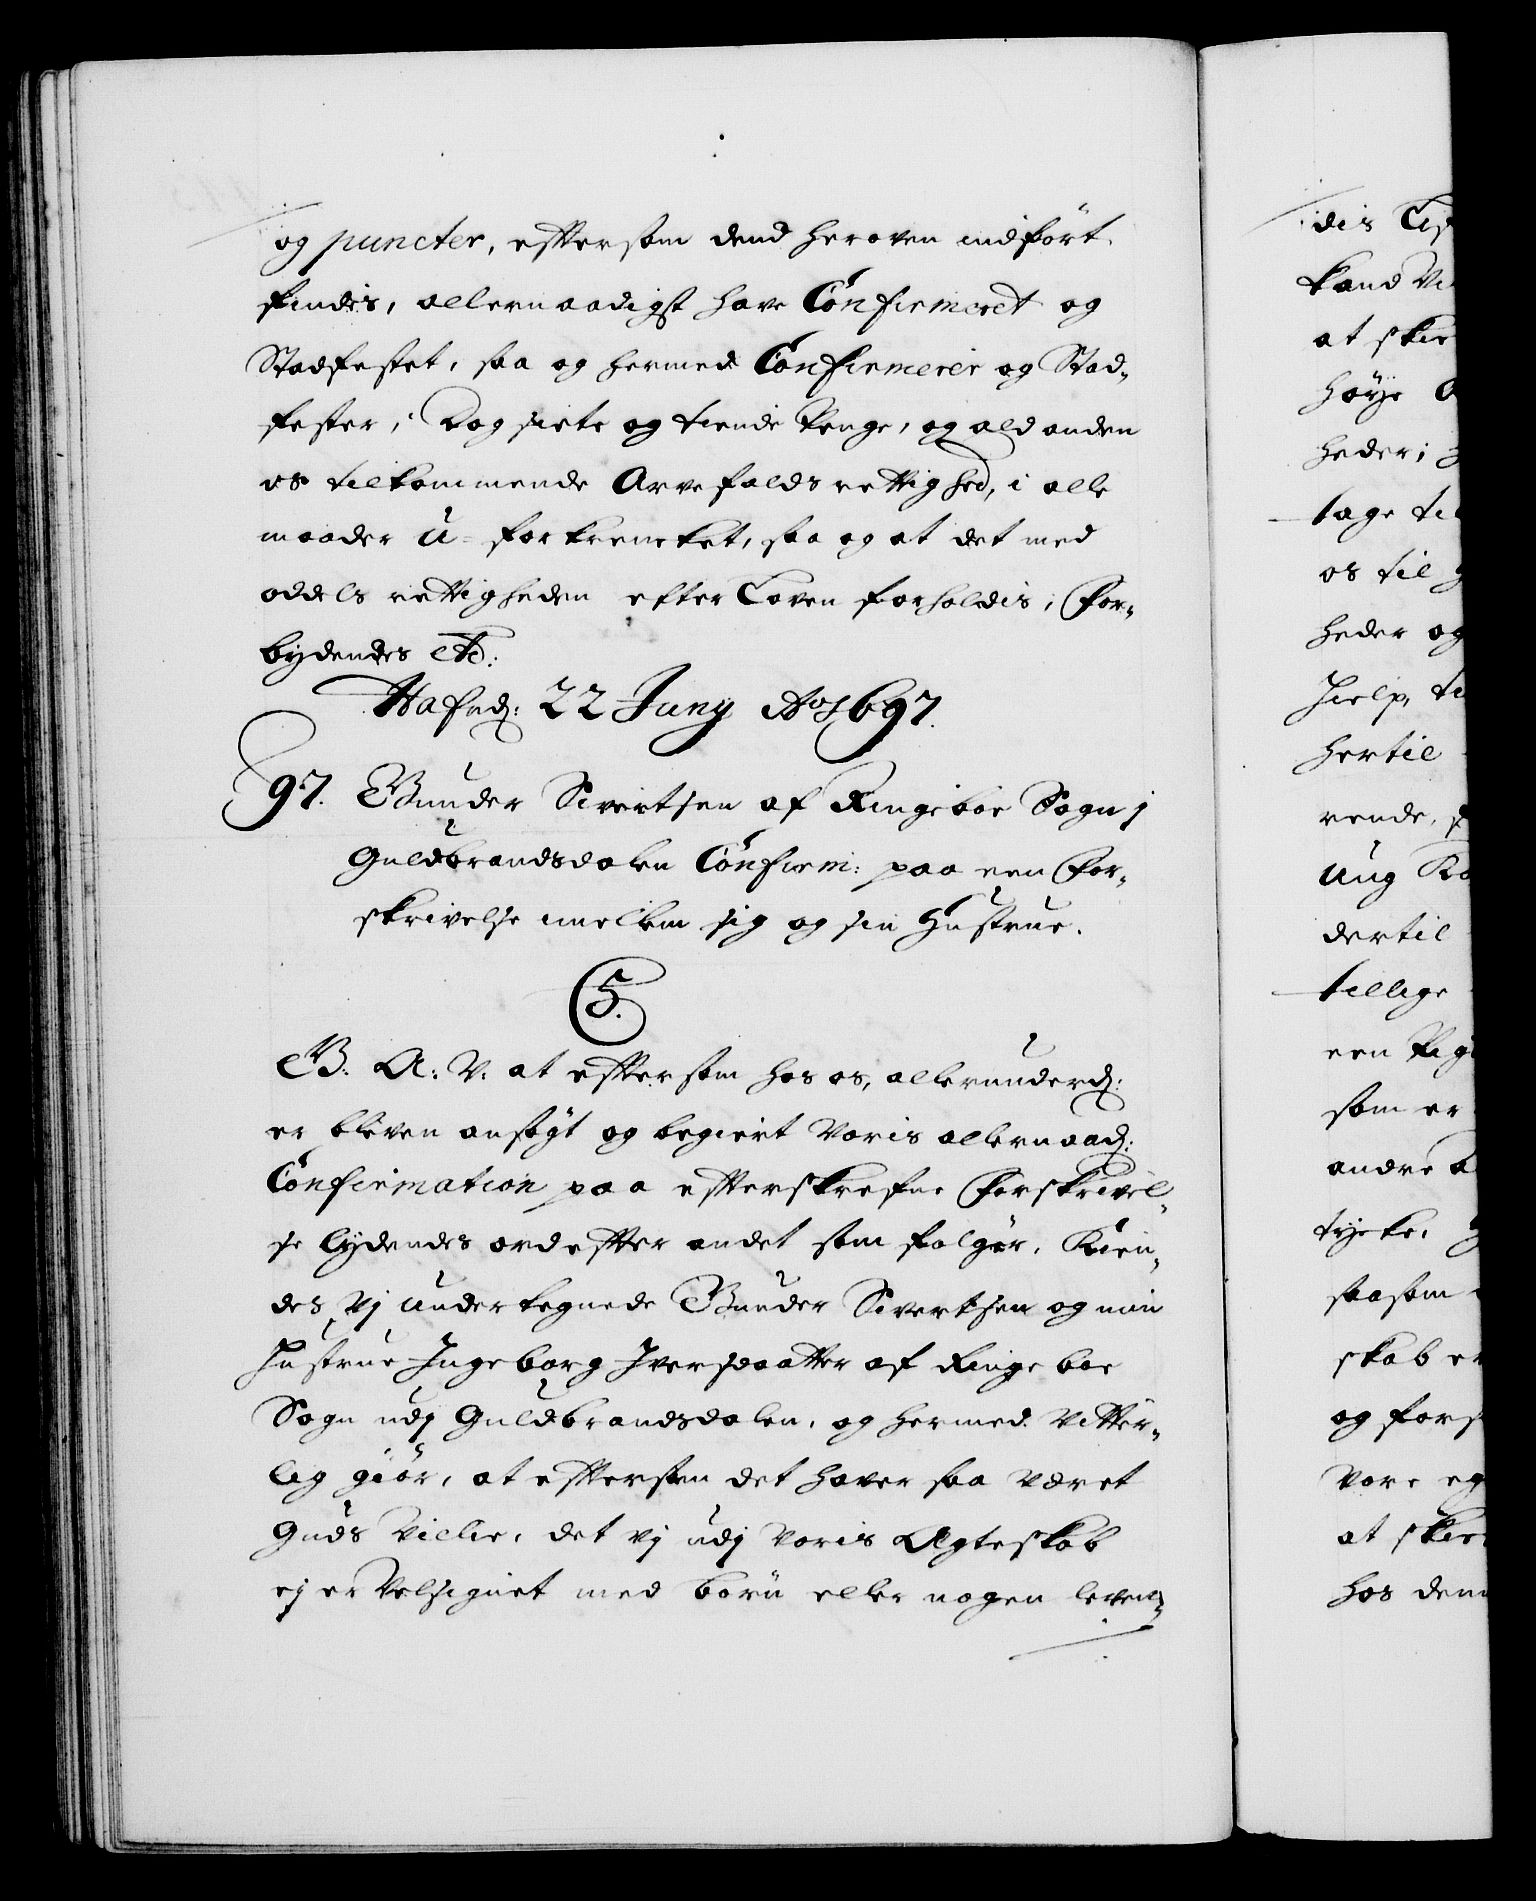 og puncter, eftersom dend heroven indført
findes, allernaadigst have Confirmeret og
Stadfestet, saa og hermed Confirmerer og Stad-
fester, Dog siette og tiende Penge, og ald anden
os tilkommende Arvefalds rettighed, i alle
maader u-forkrencket, saa og at det med
oddels rettigheden efter Loven forholdis, For-
bydendes etc:
Hafnd: 22 Juny Ao 1697.
97. Gunder Sivertsen af Ringeboe Sogn j
Guldbrandsdalen Confirm: paa een For-
skrivelse imellem sig og sin Hustrue.
C5.
G. A: V: at eftersom hos os, allerunderd:
er bleven ansøgt og begiert Voris allernaad:
Confirmation paa efterskrefne Forskrivel-
se lydendes ord efter andet som følger, Kien-
des Vj undertegnede Gunder Sivertsen og min
Hustrue Ingeborg Iversdaatter af Ringeboe
Sogn udj Guldbrandsdalen, og hermed Vitter-
lig giør, at eftersom det haver saa været
Guds Villie, det vj udj Voris Ægteskab
ej er Velsignet med børn eller nogen leven-
dis
kand
at
høye
heder;
tage
os til
heder og
hielp,
hertil
rende,
ung
dertil
tillige
een
som er
andre
tycke,
saasom
skab
og
vore
at
hos